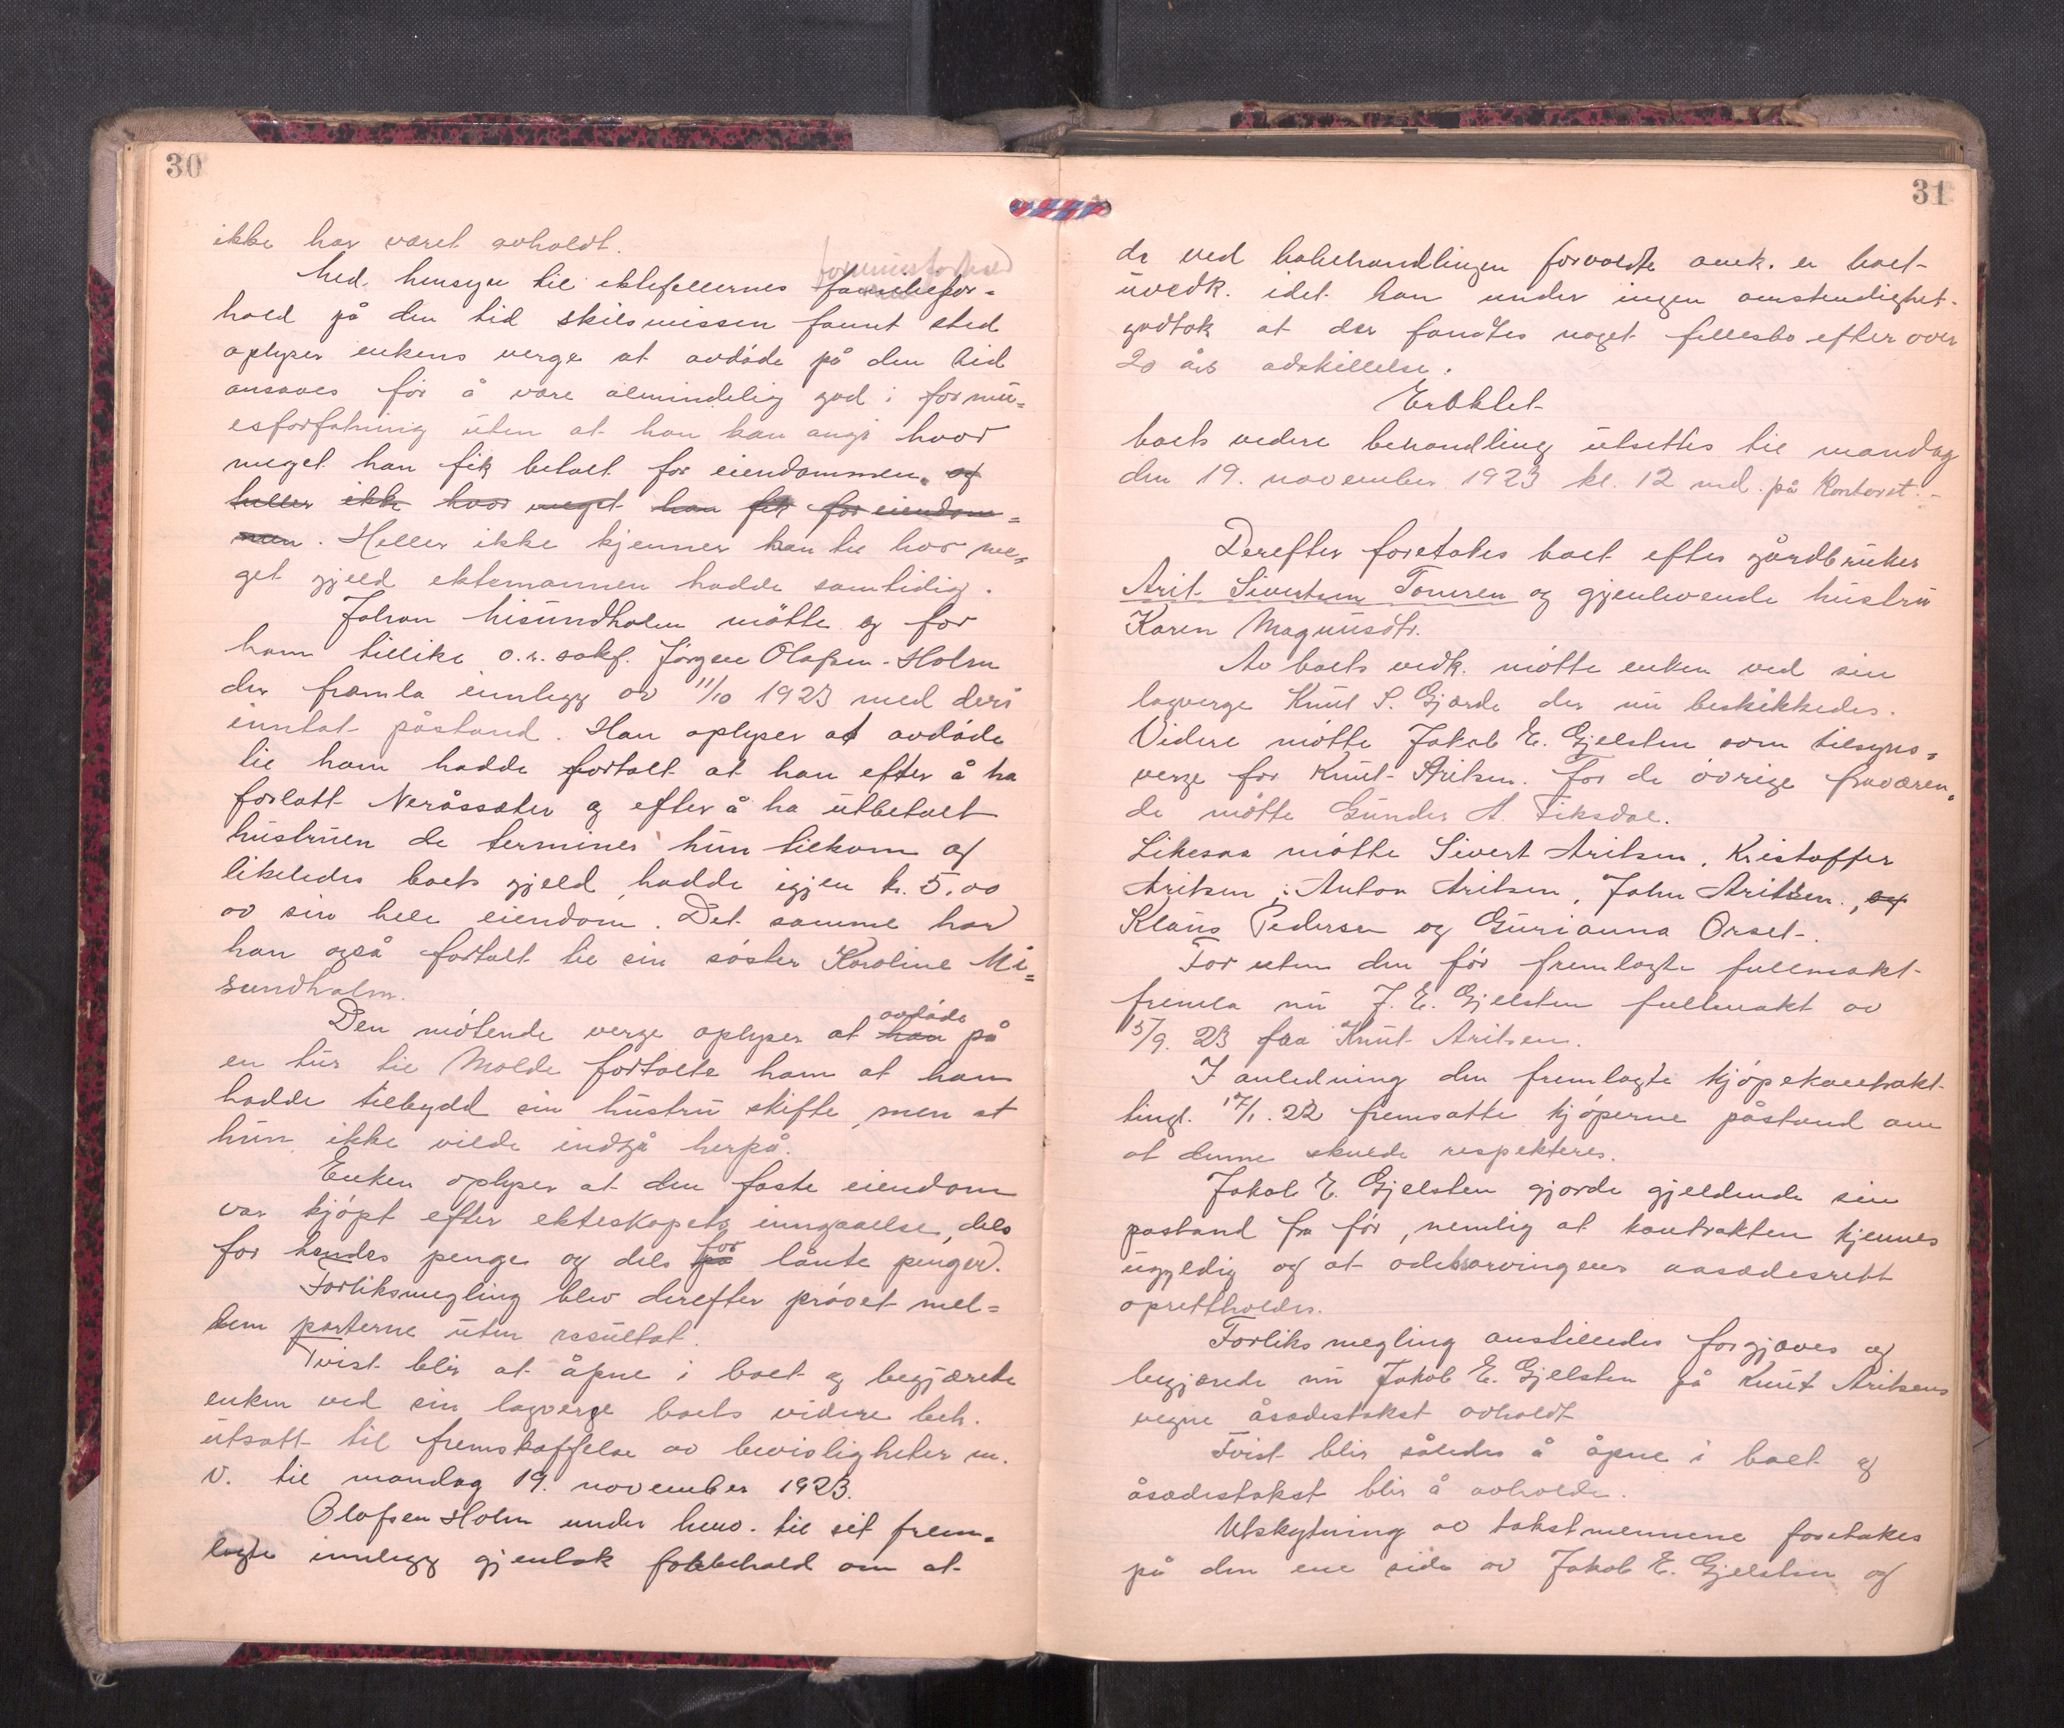 30
ikke har været avholdt.
formuesforhold
Med hensyn til ektefellernes familiefor-
hold på den tid skilsmissen fannt sted
oplyser enkens verge at avdøde på den tid
ansaaes for å være almindelig god i formu-
esforfatning uten at han kan angi hvor
meget han fik betalt for eiendommen. og
heller ikke hvor meget han fik for eiendom-
men. Heller ikke kjenner han til hvor me-
get gjeld ektemannen hadde samtidig.
Johan Misundholm møtte og for
ham tillike o.r. sakf. Jørgen Olafsen-Holm
der framla innlegg av 11/10 1923 med deri
inntat påstand. Han oplyser at avdøde
til ham hadde fortalt at han efter å ha
forlatt Neråssæter og efter å ha utbetalt
hustruen de terminer hun tilkom og
likeledes boets gjeld hadde igjen kr. 5.00
av sin hele eiendom. Det samme har
han også fortalt til sin søster Karoline Mi-
sundholm.
avdøde
Den møtende verge oplyser at han på
en tur til Molde fortalte ham at han
hadde tilbydd sin hustru skifte, men at
hun ikke vilde indgå herpå.
Enken oplyser at den faste eiendom
var kjøpt efter ekteskapets inngaaelse, dels
for
for hendes penge og dels på lånte penger.
Forliksmegling blev derefter prøvet mel-
lem parterne uten resultat.
Tvist blir at åpne i boet og begjærete
enken ved sin lagverge boets videre beh.
utsatt til fremskaffelse av bevisligheter m.
v. til mandag 19. november 1923.
Olafsen Holm under henv. til sit frem-
lagte innlegg gjentok forbehold om at
31
de ved bobehandlingen forvoldte omk. er boet
uvedk. idet han under ingen omstendighet
godtok at der fandtes noget fellesbo efter over
20 års adskillelse.
Erklet
boets videre behandling utsettes til mandag
den 19. november 1923 kl. 12 md. på kontoret.
Derefter foretokes boet efter gårdbruker
Arit Sivertsen Tomren og gjenlevende hustru
Karen Magnusdtr.
Av boets vedk. møtte enken ved sin
lagverge Knut S. Gjærde der nu beskikkedes.
Videre møtte Jakob E. Gjelsten som tilsyns-
verge for Knut Aritsen. For de øvrige fraværen-
de møtte Gunder A. Fiksdal.
Likesaa møtte Sivert Aritsen, Kristoffer
Aritsen, Anton Aritsen, John Aritsen, og
Klaus Pedersen og Gurianna Orset.
For uten den før fremlagte fullmakt
fremla nu J. E. Gjelsten fullmakt av
15/9. 23 fra Knut Aritsen.
I anledning den fremlagte kjøpekontrakt
tingl. 17/1. 22 fremsatte kjøperne påstand om
at denne skulde respekteres.
Jakob E. Gjelsten gjorde gjeldende sin
pastand fra før, nemlig at kontrakten kjennes
ugyldig og at odelsarvingens aasædesrett
oprettholdes.
Forliksmegling anstilledes forgjæves og
begjærede nu Jakob E. Gjelsten på Knut Aritsens
vegne åsædestakst avholdt
Tvist blir således å åpne i boet og
åsædestakst blir å avholde.
Utskytning av takstmennene foretakes
på den ene side av Jakob E. Gjelsten og